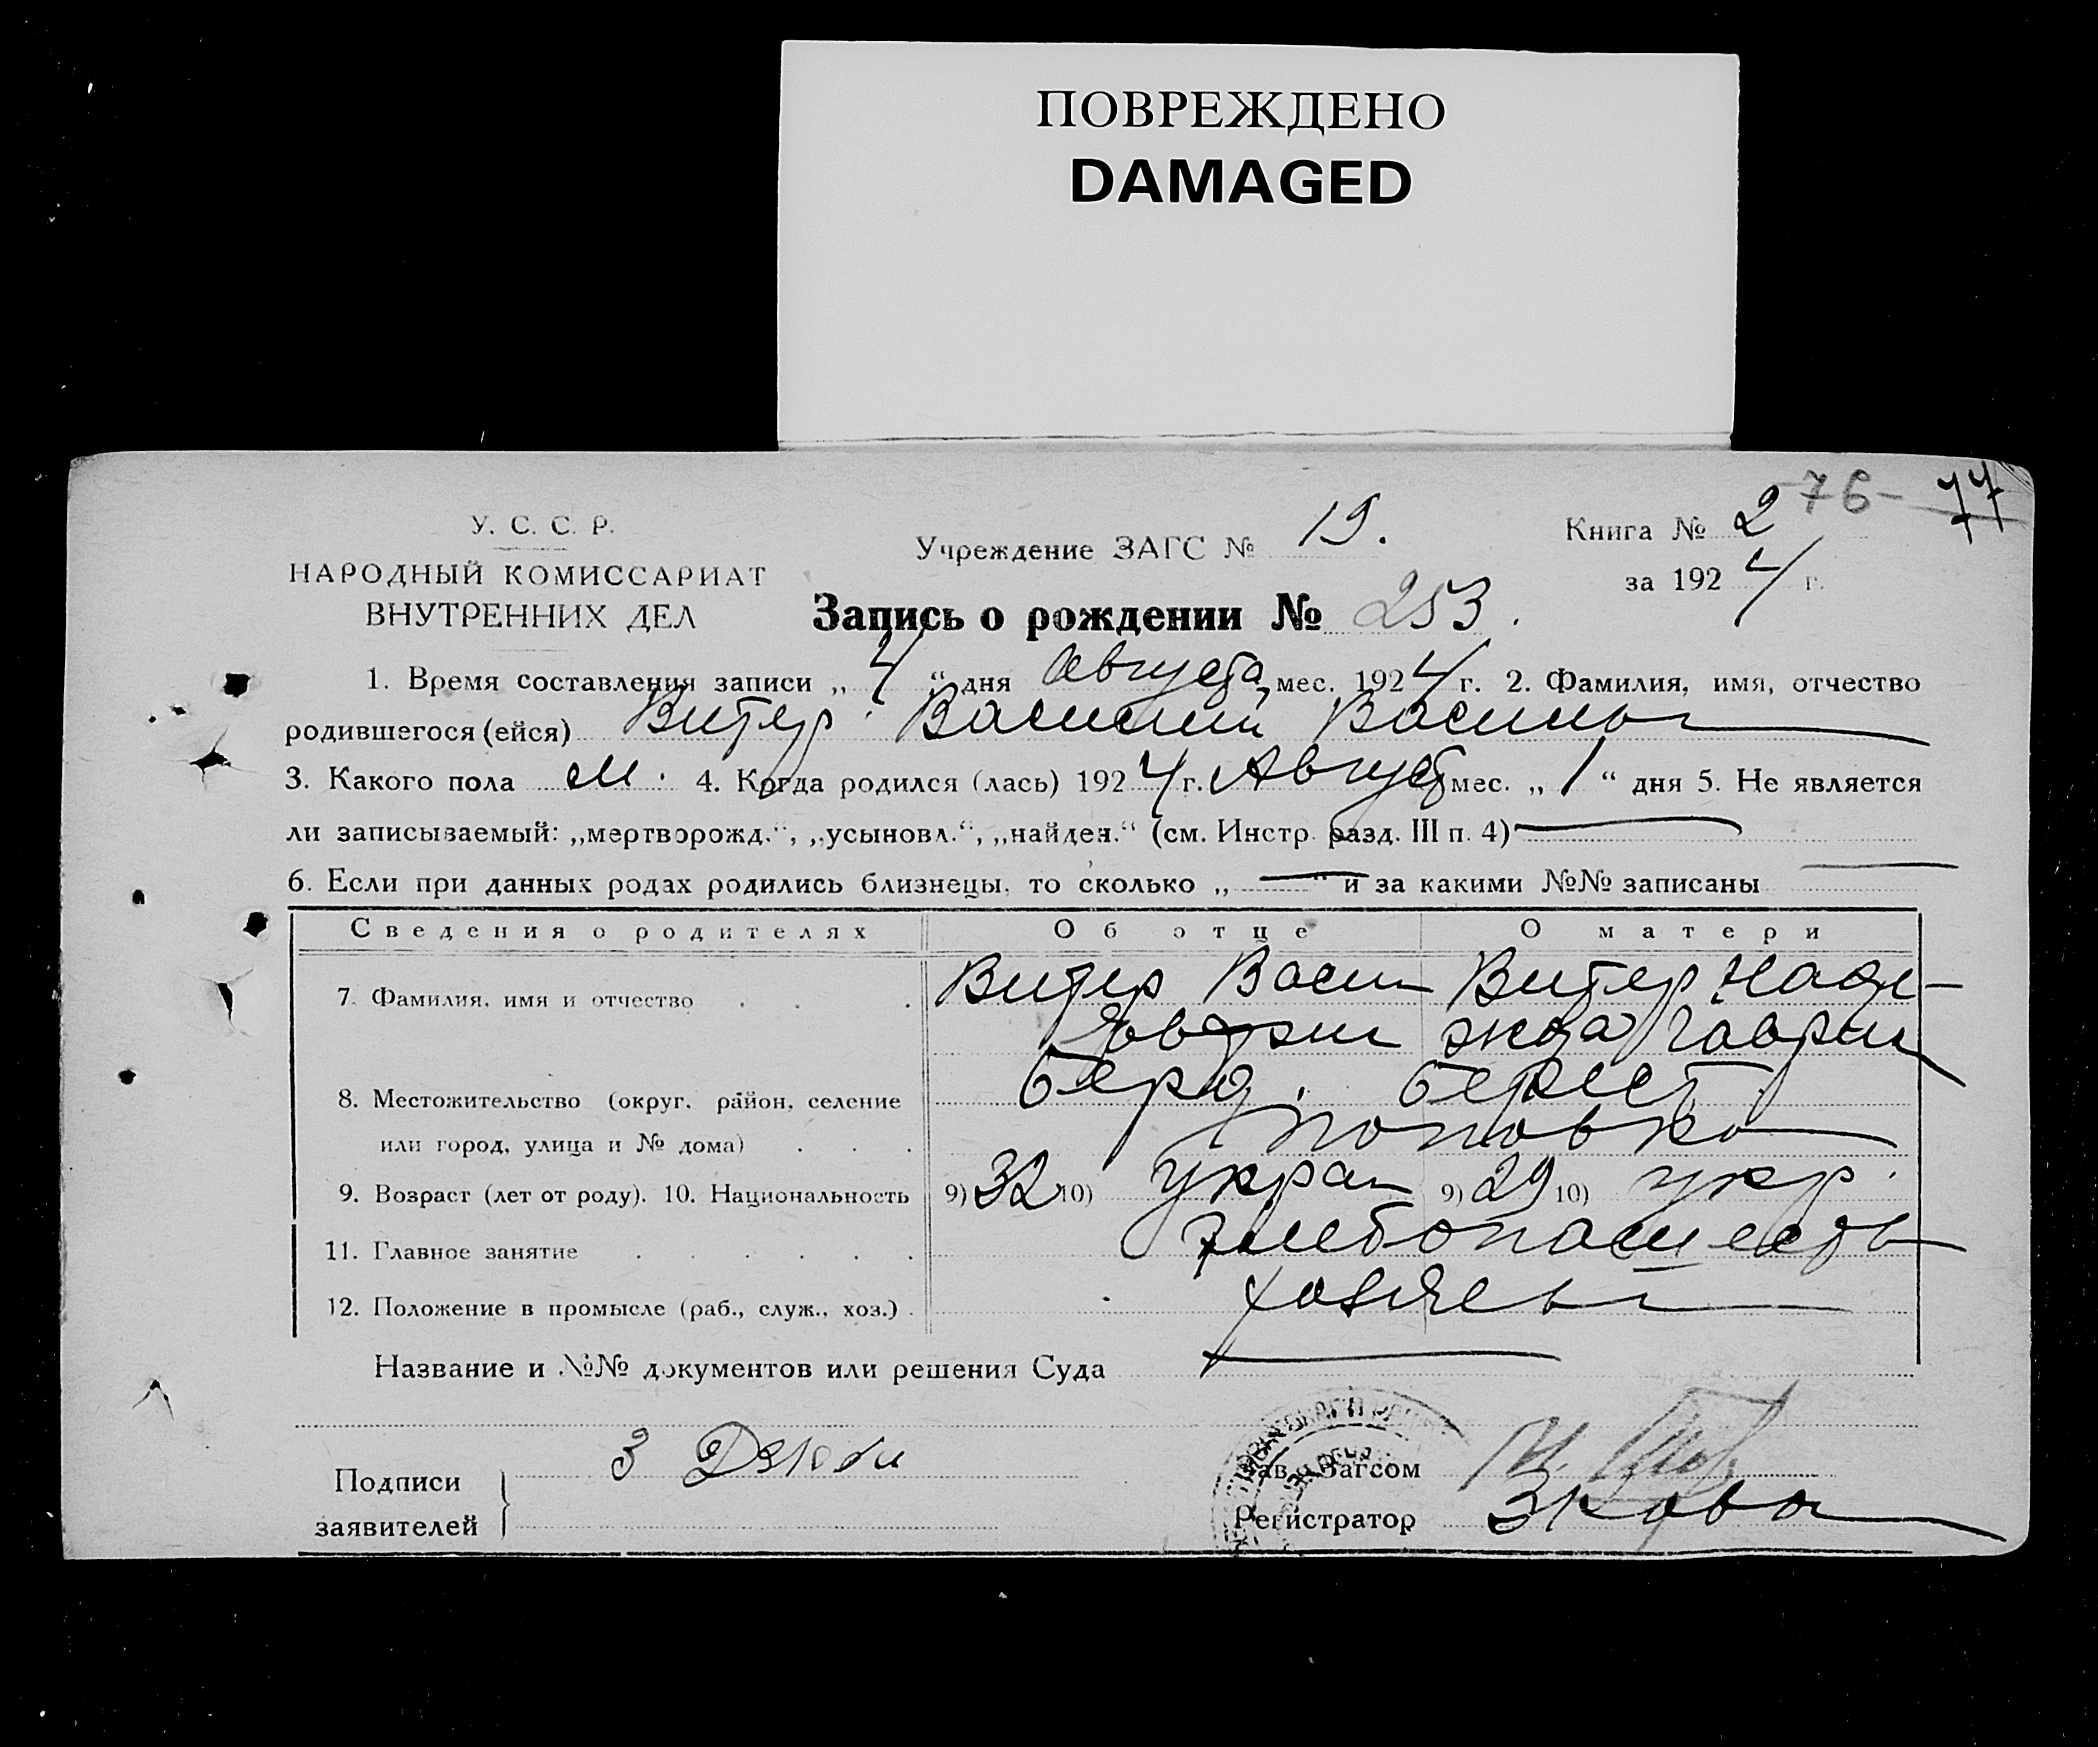 ПОВРЕЖДЕНО
DAMAGED
76 77
У. С. С. Р.
НАРОДНЫЙ КОМИССАРИАТ
ВНУТРЕННИХ ДЕЛ
Учреждение ЗАГС № 19.
Книга № 2
за 1924 г.
Запись о рождении № 253.
1. Время составления записи „4“ дня Августа мес. 1924 г. 2. Фамилия, имя, отчество
родившегося (ейся) Витер Василий Василь
3. Какого пола м. 4. Когда родился (лась) 1924 г. Август мес. „1“ дня 5. Не является
ли записываемый: „мертворожд.“, „усыновл.“, „найден.“ (см. Инстр. разд. III п. 4)
6. Если при данных родах родились близнецы, то сколько „—“ и за какими №№ записаны
Сведения о родителях Об отце О матери
7. Фамилия, имя и отчество . . . Витер Васи Витер Наде-
жда Гаврил
8. Местожительство (округ, район, селение Берд.
или город, улица и № дома) . . . Поповка
9. Возраст (лет от роду). 10. Национальность 9) 32 10) Украи 9) 29 10) укр.
11. Главное занятие . . . . . . Хлебопашеств
12. Положение в промысле (раб., служ., хоз.) . хозяева
Название и №№ документов или решения Суда
Подписи
заявителей
Зав. Загсом
Регистратор